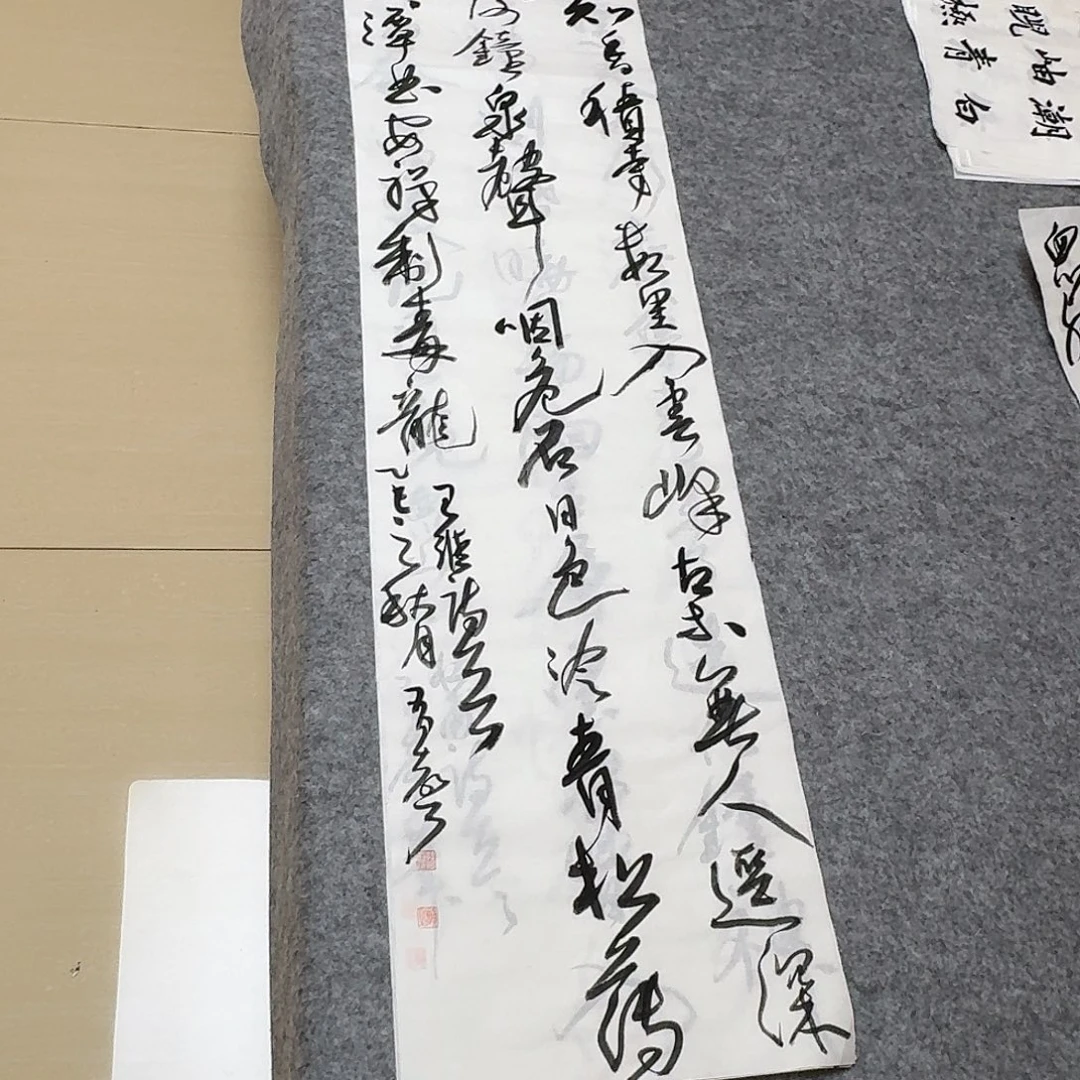 知香積寺數里入雲峰古木無人逕深
鐘泉聲咽危石日色冷青松薄
潭曲安禪制毒龍
王維詩
乙巳之秋月
岫潮
青白